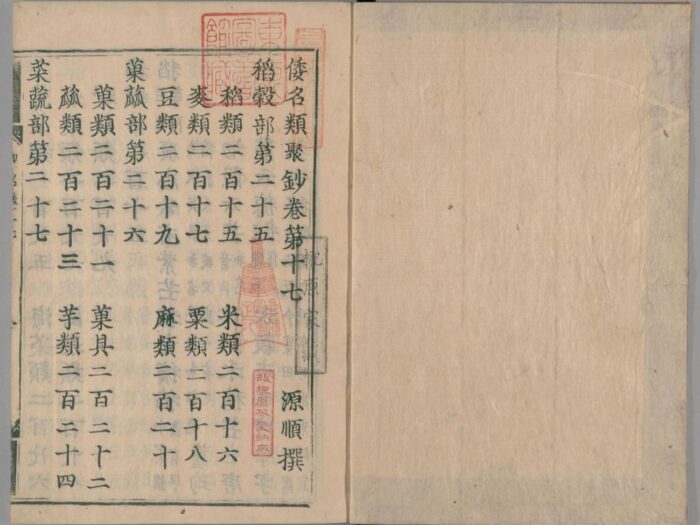 倭名類聚鈔卷第十七 源順撰
稻穀部第二十五
稻類二百十五 米類二百十六
麥類二百十七 粟類二百十八
豆類二百十九 麻類二百二十
菓蓏部第二十六
菓類二百二十一 菓具二百二十二
蓏類二百二十三 芋類二百二十四
菜蔬部第二十七